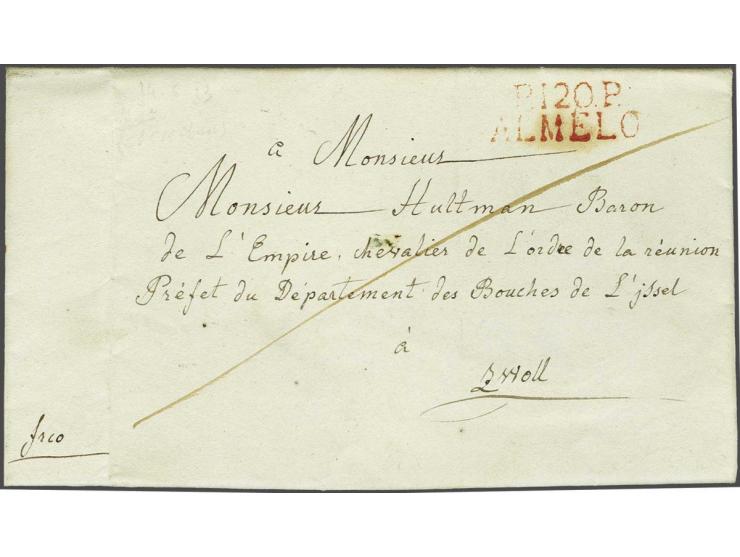 P.120.P.
ALMELO
a Monsieur
Monsieur Hultman Baron
de L'Empire, chevalier de L'ordre de la réunion
Préfet du Département des Bouches de L'ijssel
à
Zwoll
frco